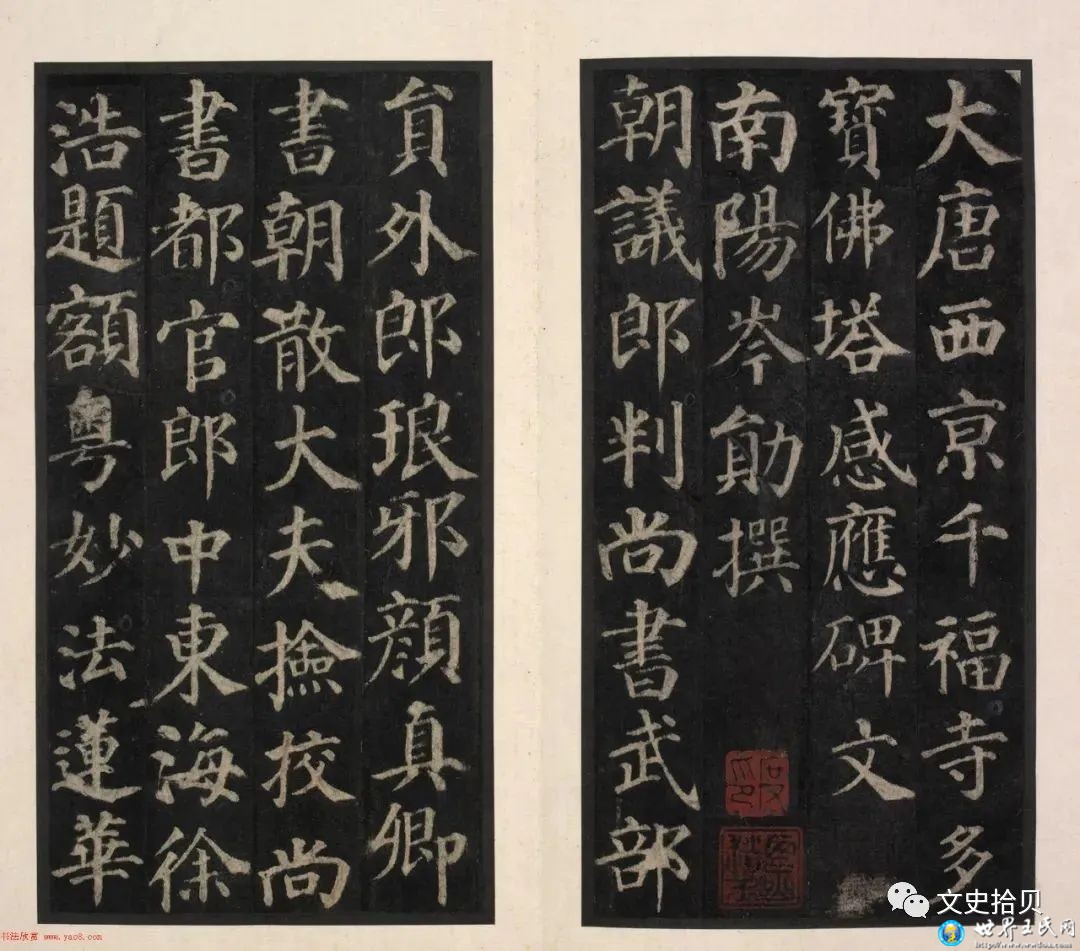 大唐西京千福寺多
寶佛塔感應碑文
南陽岑勛撰
朝議郎判尚書武部
員外郎琅邪顏真卿
書朝散大夫撿挍尚
書都官郎中東海徐
浩題額粤妙法蓮華
文史拾贝
世界王氏网
http://www.wwdoa.com
书法欣赏 www.yac8.com